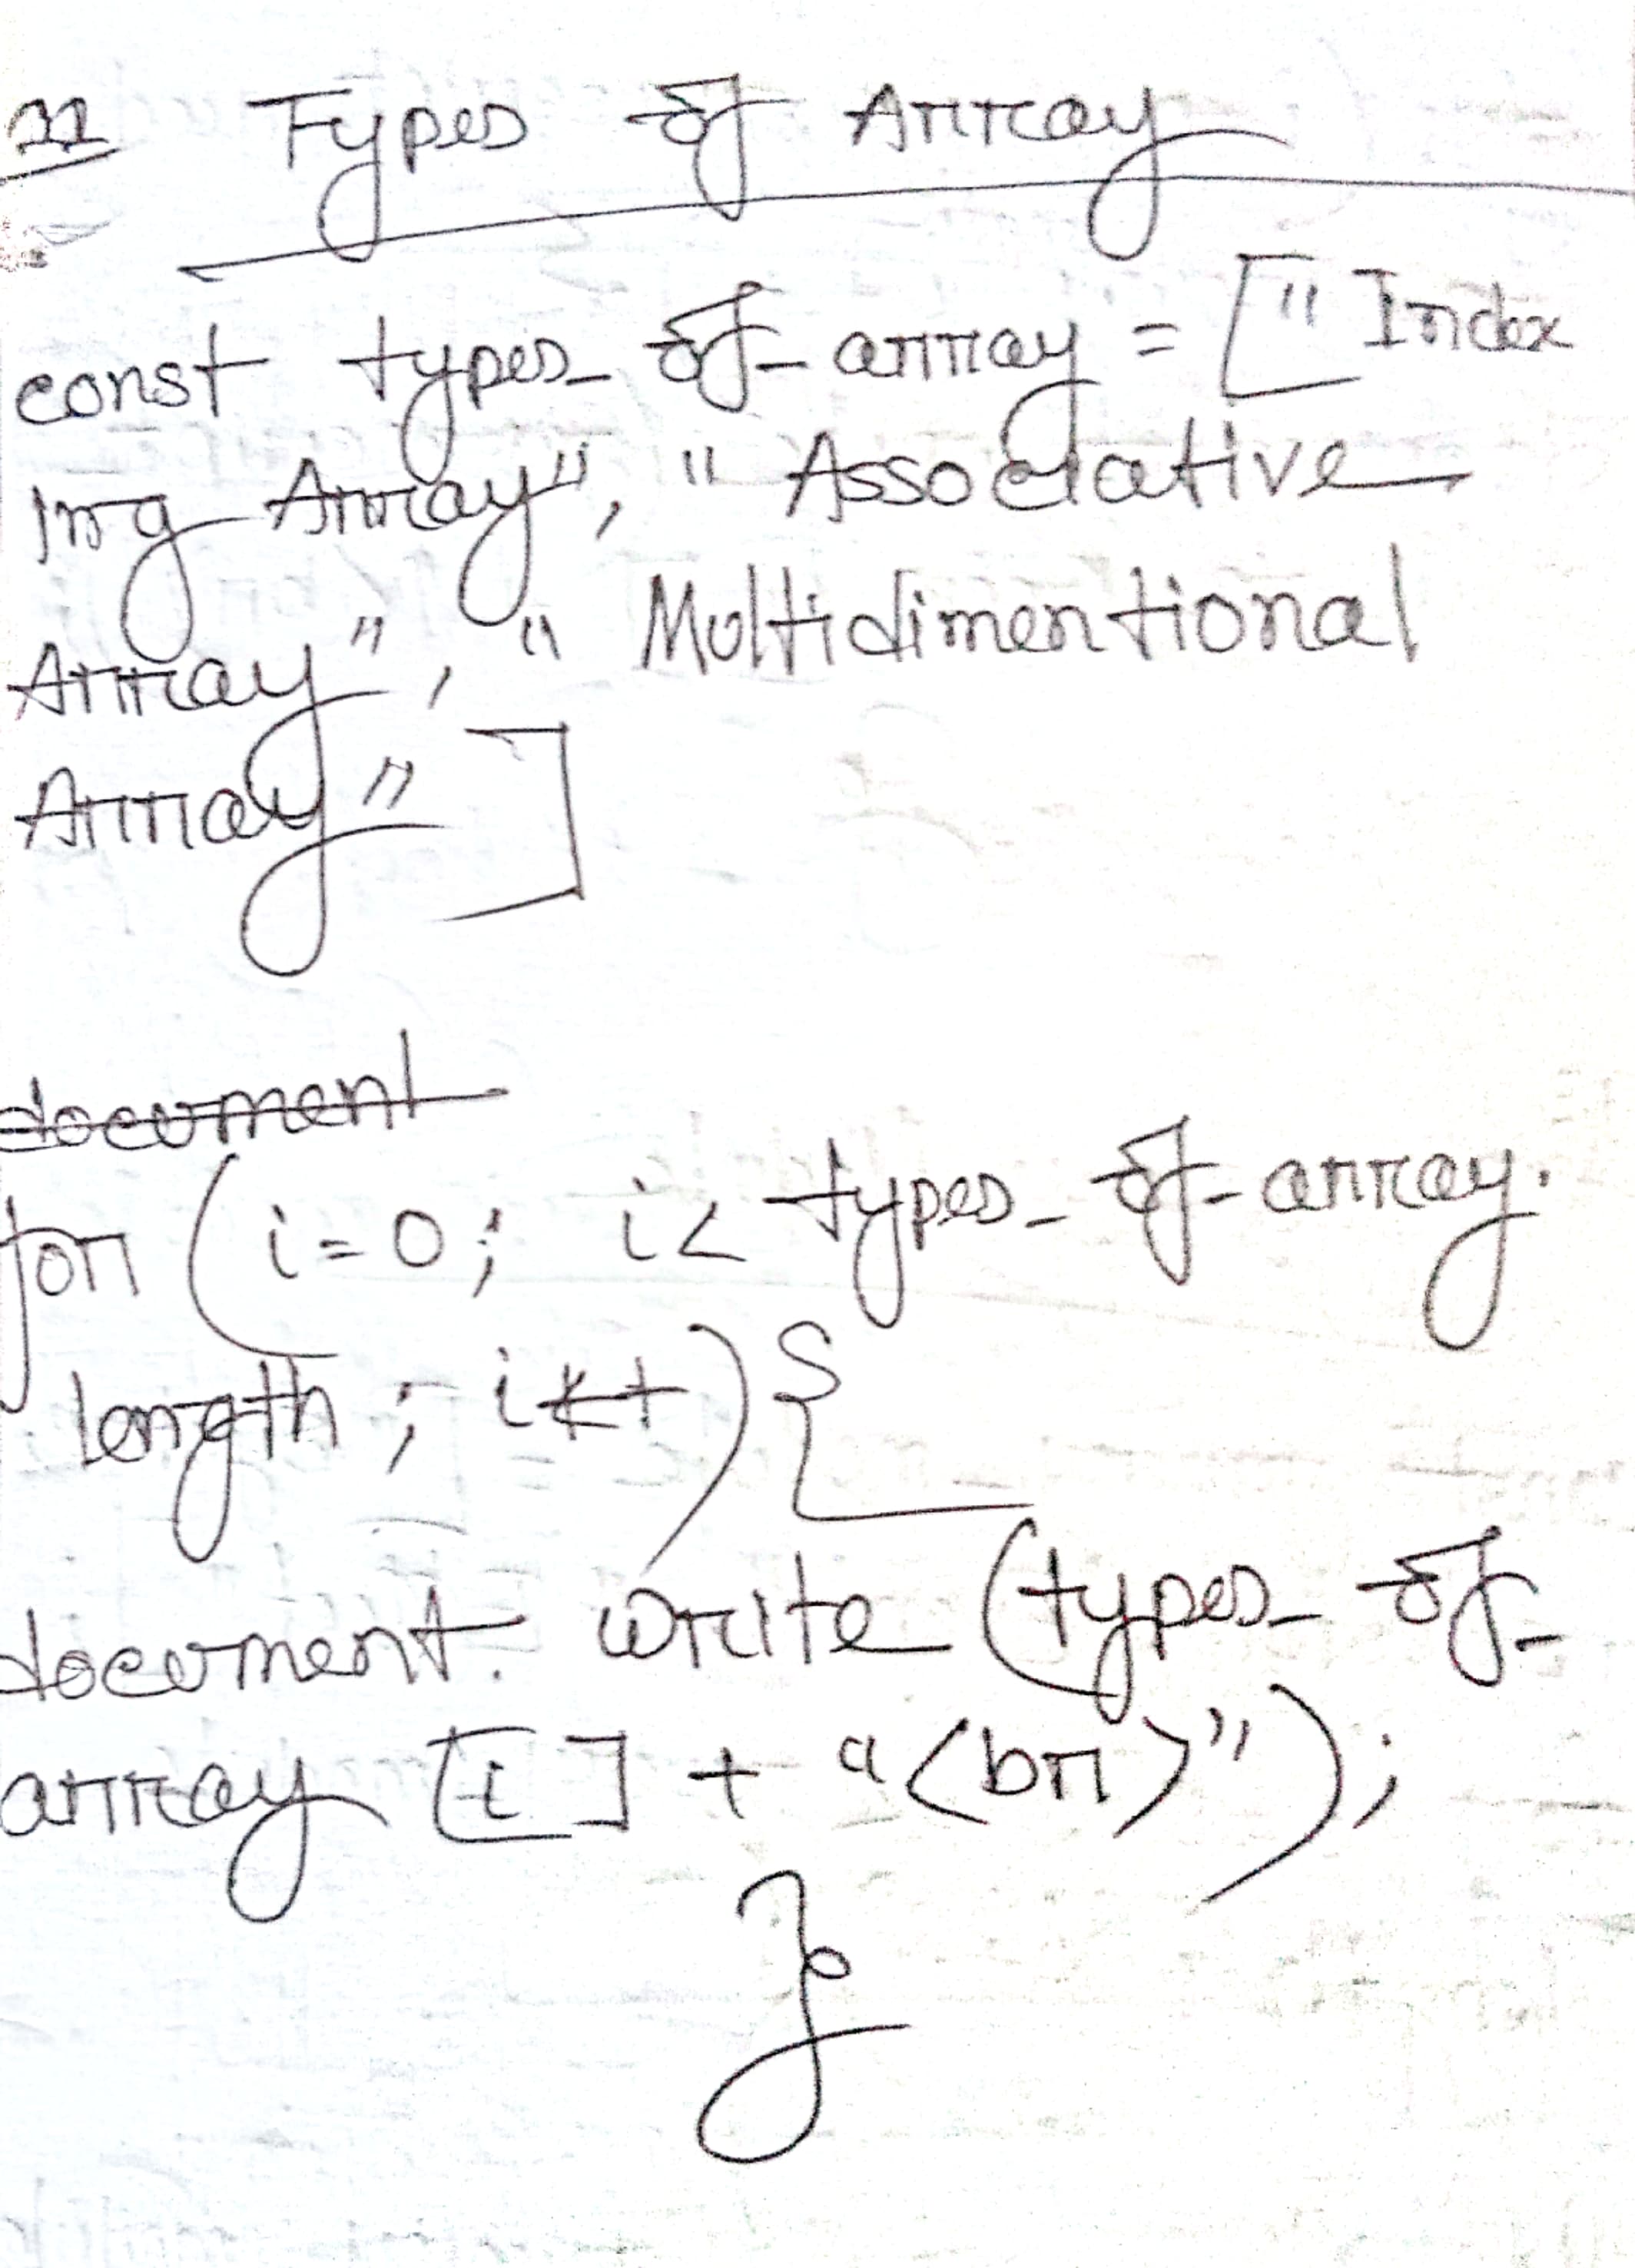 11 Types of Array
const types_of_array = ["Index
ing Array", "Associative
Array", "Multidimentional
Array"]
document
for (i=0; i< types_of_array.
length ; i++) {
document. write (types_of_
array [i] + "<br>");
}